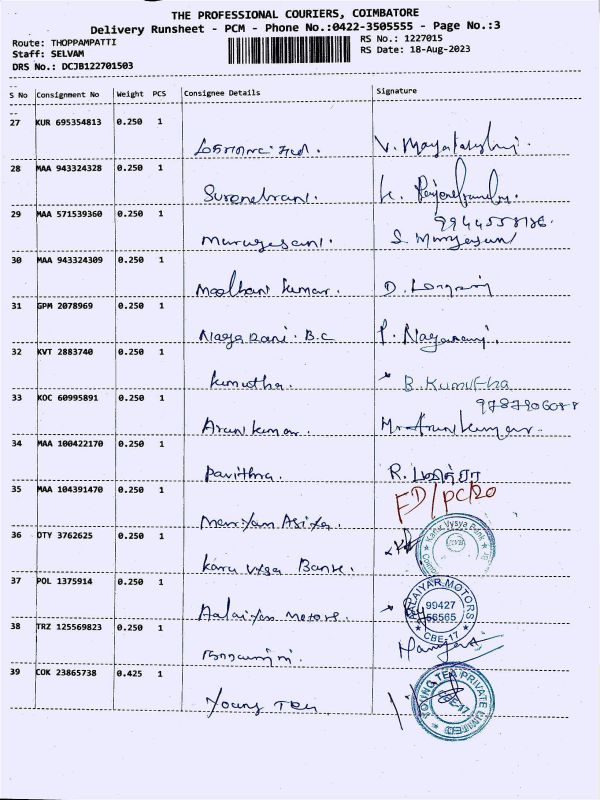 THE PROFESSIONAL COURIERS, COIMBATORE
Delivery Runsheet - PCM - Phone No.:0422-3505555 - Page No.:3
Route: THOPPAMPATTI
Staff: SELVAM
DRS No.: DCJB122701503
RS No.: 1227015
RS Date: 18-Aug-2023
S No Consignment No Weight PCS Consignee Details Signature
27 KUR 695354813 0.250 1
28 MAA 943324328 0.250 1
29 MAA 571539360 0.250 1
Murugesan. S. Murugesan
30 MAA 943324309 0.250 1
Kumar.
31 GPM 2078969 0.250 1
Nagarani. B.C P. Nagarani.
32 KVT 2883740 0.250 1
Kumutha. B. Kumutha
33 KOC 60995891 0.250 1
Arun kumar. Mr. Arun kumar.
34 MAA 100422170 0.250 1
Pavithra. R. பவித்ரா
35 MAA 104391470 0.250 1
FD/PC20
36 OTY 3762625 0.250 1
Karur Vysya Bank. Karur Vysya Bank
37 POL 1375914 0.250 1
Aalaiyar Motors. AALAIYAR MOTORS
99427
56565
CBE-17
38 TRZ 125569823 0.250 1
39 COK 23865738 0.425 1
Young Tea YOUNG TEA PRIVATE LIMITED
CBE-17